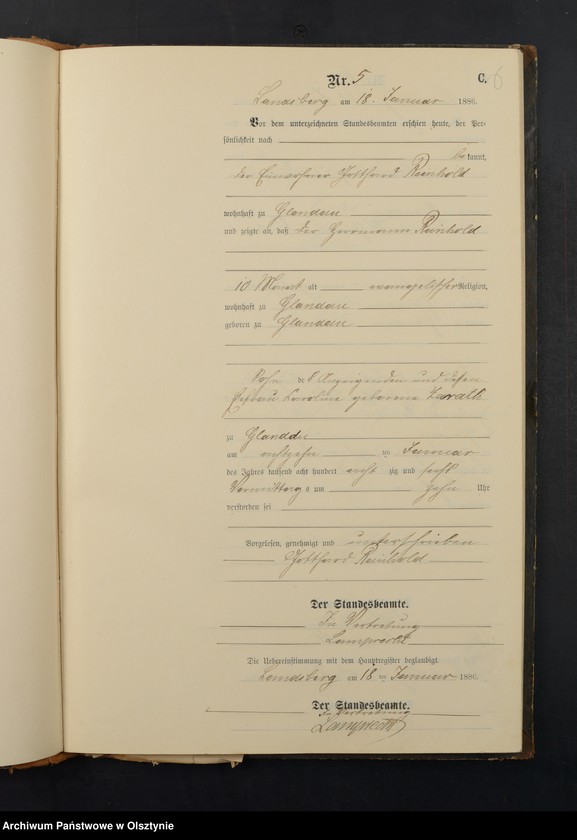 Nr. 5
C.
6
Landsberg am 18. Januar 1886.
Vor dem unterzeichneten Standesbeamten erschien heute, der Per-
sönlichkeit nach
be kannt,
der Einwohner Gotthard Reinhold
wohnhaft zu Glandau
und zeigte an, daß der Herrmann Reinhold
10 Monat alt evangelischer Religion,
wohnhaft zu Glandau
geboren zu Glandau
Sohn des Anzeigenden und dessen
Ehefrau Caroline geborene
zu Glandau
am achtzehn ten Januar
des Jahres tausend acht hundert acht zig und sechs
Vormittags um zehn Uhr
verstorben sei
Vorgelesen, genehmigt und unterschrieben
Gotthard Reinhold
Der Standesbeamte.
In Vertretung
Lamprecht
Die Uebereinstimmung mit dem Hauptregister beglaubigt
Landsberg am 18 ten Januar 1886.
Der Standesbeamte.
In Vertretung
Lamprecht
Archiwum Państwowe w Olsztynie